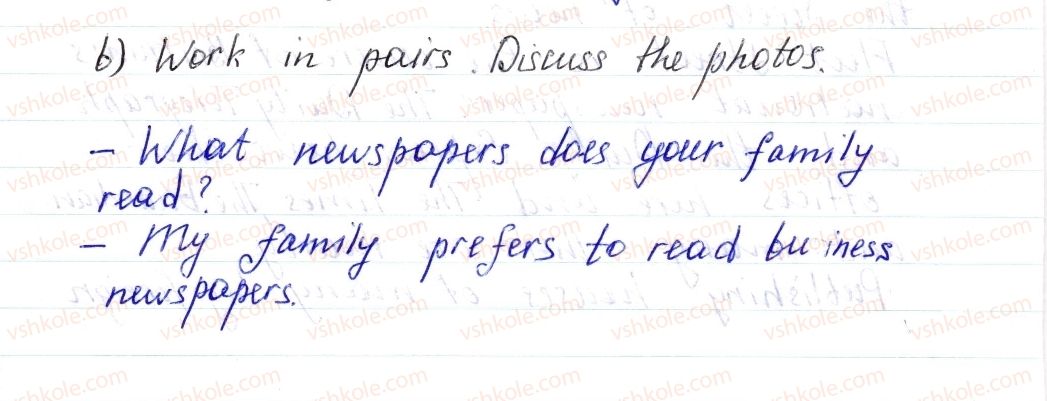 b) Work in pairs. Discuss the photos.
– What newspapers does your family
read?
– My family prefers to read bu iness
newspapers.